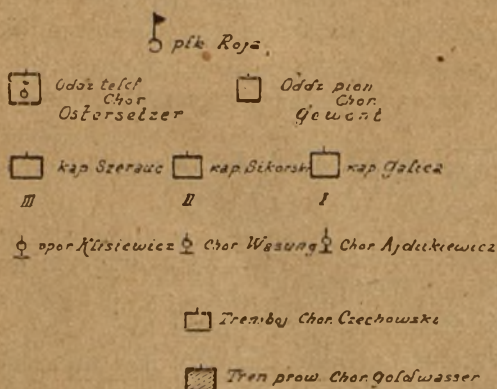 płk Roja
Oddz telef
Chor
Ostersetzer
Oddz pion
Chor.
Gewont
kap Szerauc
kap. Sikorski
kap. Galica
III
II
I
ppor Klisiewicz
Chor Wasung
Chor Ajdukiewicz
Tren boj Chor. Czechowski
Tren prow. Chor. Goldwasser